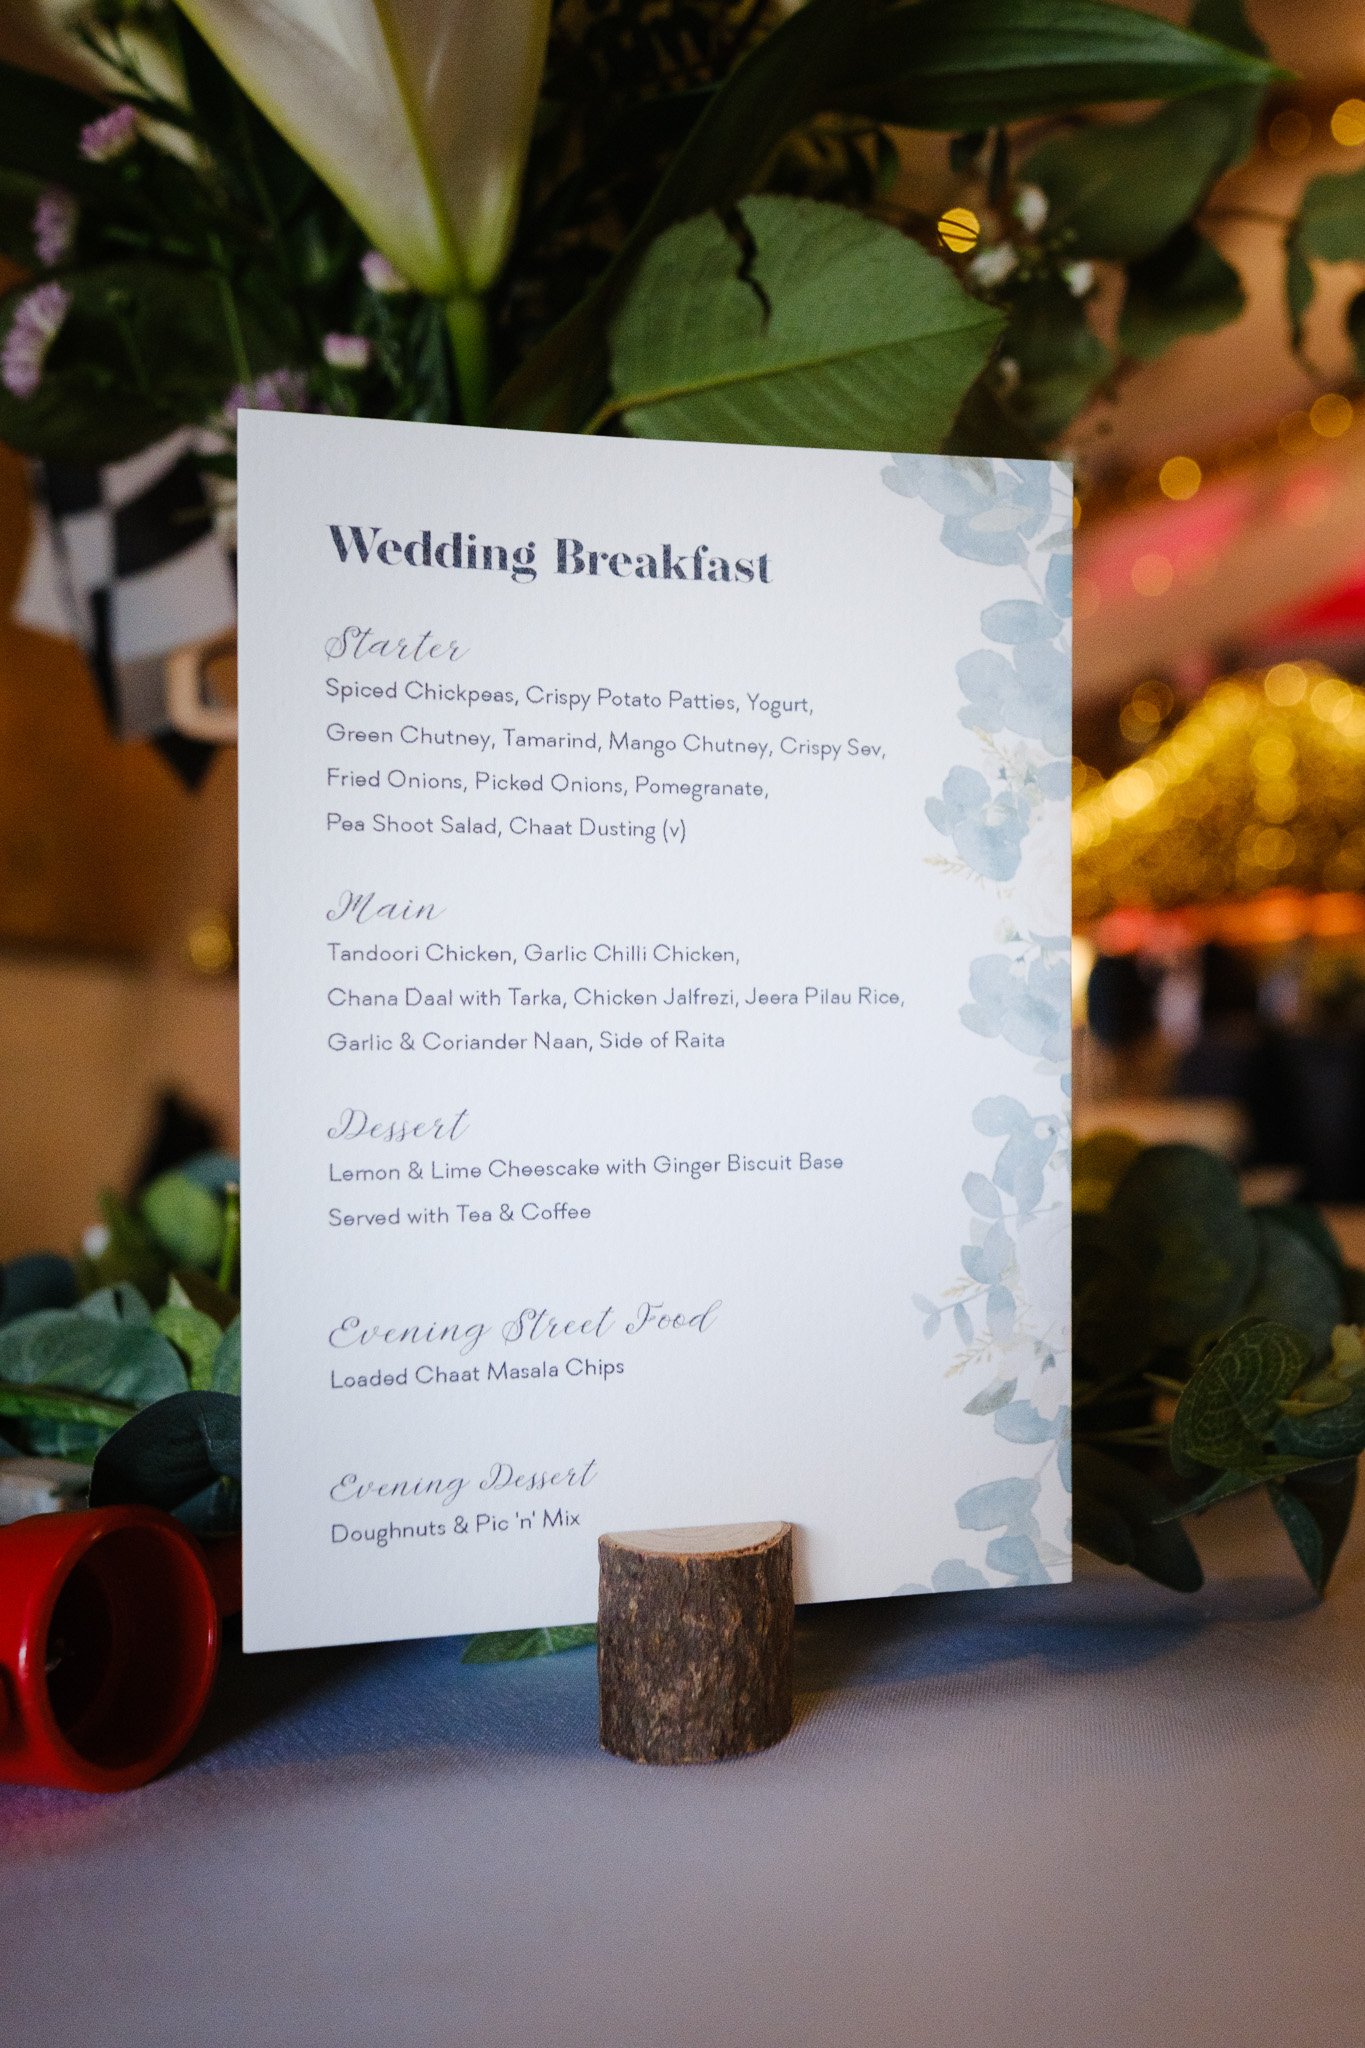 Wedding Breakfast
Starter
Spiced Chickpeas, Crispy Potato Patties, Yogurt,
Green Chutney, Tamarind, Mango Chutney, Crispy Sev,
Fried Onions, Picked Onions, Pomegranate,
Pea Shoot Salad, Chaat Dusting (v)
Main
Tandoori Chicken, Garlic Chilli Chicken,
Chana Daal with Tarka, Chicken Jalfrezi, Jeera Pilau Rice,
Garlic & Coriander Naan, Side of Raita
Dessert
Lemon & Lime Cheescake with Ginger Biscuit Base
Served with Tea & Coffee
Evening Street Food
Loaded Chaat Masala Chips
Evening Dessert
Doughnuts & Pic 'n' Mix